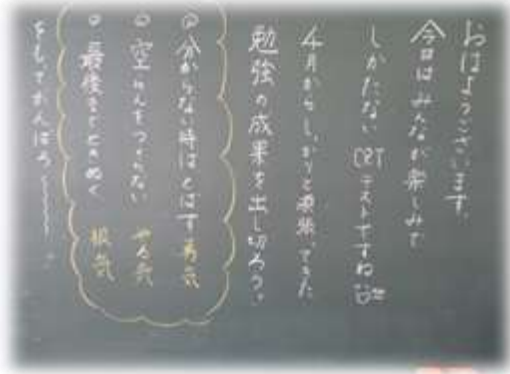 おはようございます。
今日はみなが楽しみで
しかたない CRTテストですね
4月からしっかりと頑張ってきた
勉強の成果を出し切ろう。
分からない時はとばす 勇気
空らんをつくらない やる気
最後までときぬく 根気
をもってがんばろう〜〜〜